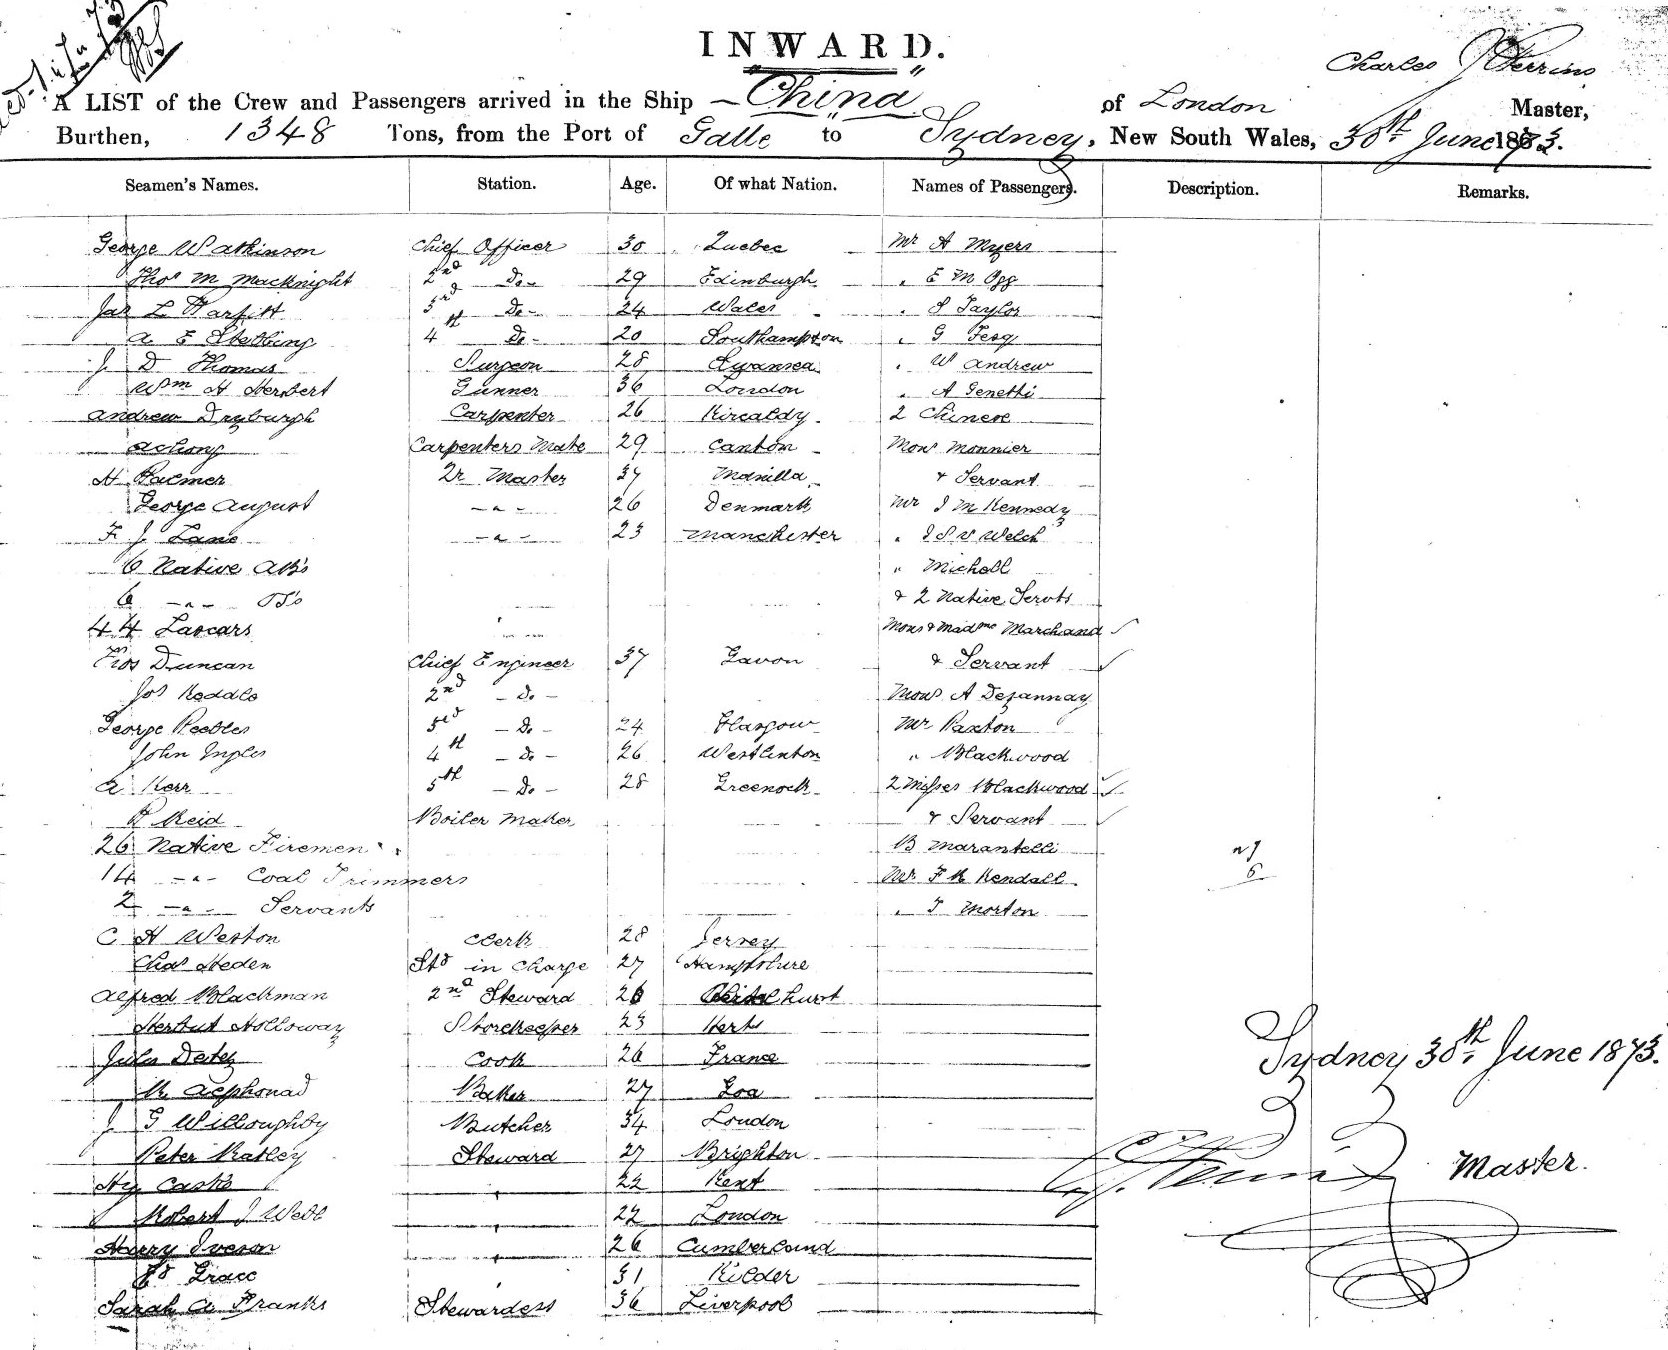 INWARD.
Charles Perrins
A LIST of the Crew and Passengers arrived in the Ship "China" of London Master,
Burthen, 1348 Tons, from the Port of Galle to Sydney, New South Wales, 30th June 1873.
Seamen's Names. Station. Age. Of what Nation. Names of Passengers. Description. Remarks.
George Watkinson Chief Officer 30 Quebec Mr A Myers
Thos M Macknight 2nd Do 29 Edinburgh " E M Ogg
Jas L Parfitt 3rd Do 24 Wales " S Taylor
A E Stebbing 4th Do 20 Southampton " G Fesq
J D Thomas Surgeon 28 Swansea " W Andrew
Wm H Herbert Gunner 36 London " A Genetti
Andrew Dryburgh Carpenter 26 Kircaldy 2 Chinese
Achong Carpenters Mate 29 Canton Mons Monnier
H Palmer Qr Master 37 Manilla & Servant
George August - " - 26 Denmark Mr J M Kennedy
F J Lane - " - 23 Manchester " J S V Welch
6 Native AB's " Michell
6 - " - OS's & 2 Native Servts
44 Lascars Mons & Madme Marchand
Duncan Chief Engineer 37 Gavon & Servant
Jos Keddle 2nd - Do - Mons A Dezannay
George Peebles 3rd - Do - 24 Glasgow Mr Paxton
John Ingles 4th - Do - 26 Westlinton " Blackwood
A Kerr 5th - Do - 28 Greenock 2 Misses Blackwood
R Reid Boiler Maker & Servant
26 Native Firemen B Marantelli
14 - " - Coal Trimmers Mr F R Kendall
2 - " - Servants " T Morton
C H Weston Clerk 28 Jersey
Chas Heden Std in Charge 27 Hampshire
Alfred Blackman 2nd Steward 26
Herbut Holloway Storekeeper 23 Herts
Jules Cook 26 France
Baker 27 Goa
J G Willoughby Butcher 34 London
Peter Ratley Steward 27 Brighton
Hy Castle " 22 Kent
Robert J Webb " 22 London
Harry Iveson " 26 Cumberland
Grace " 31 Kilder
Sarah A Franks Stewardess 36 Liverpool
Sydney 30th June 1873.
Master.